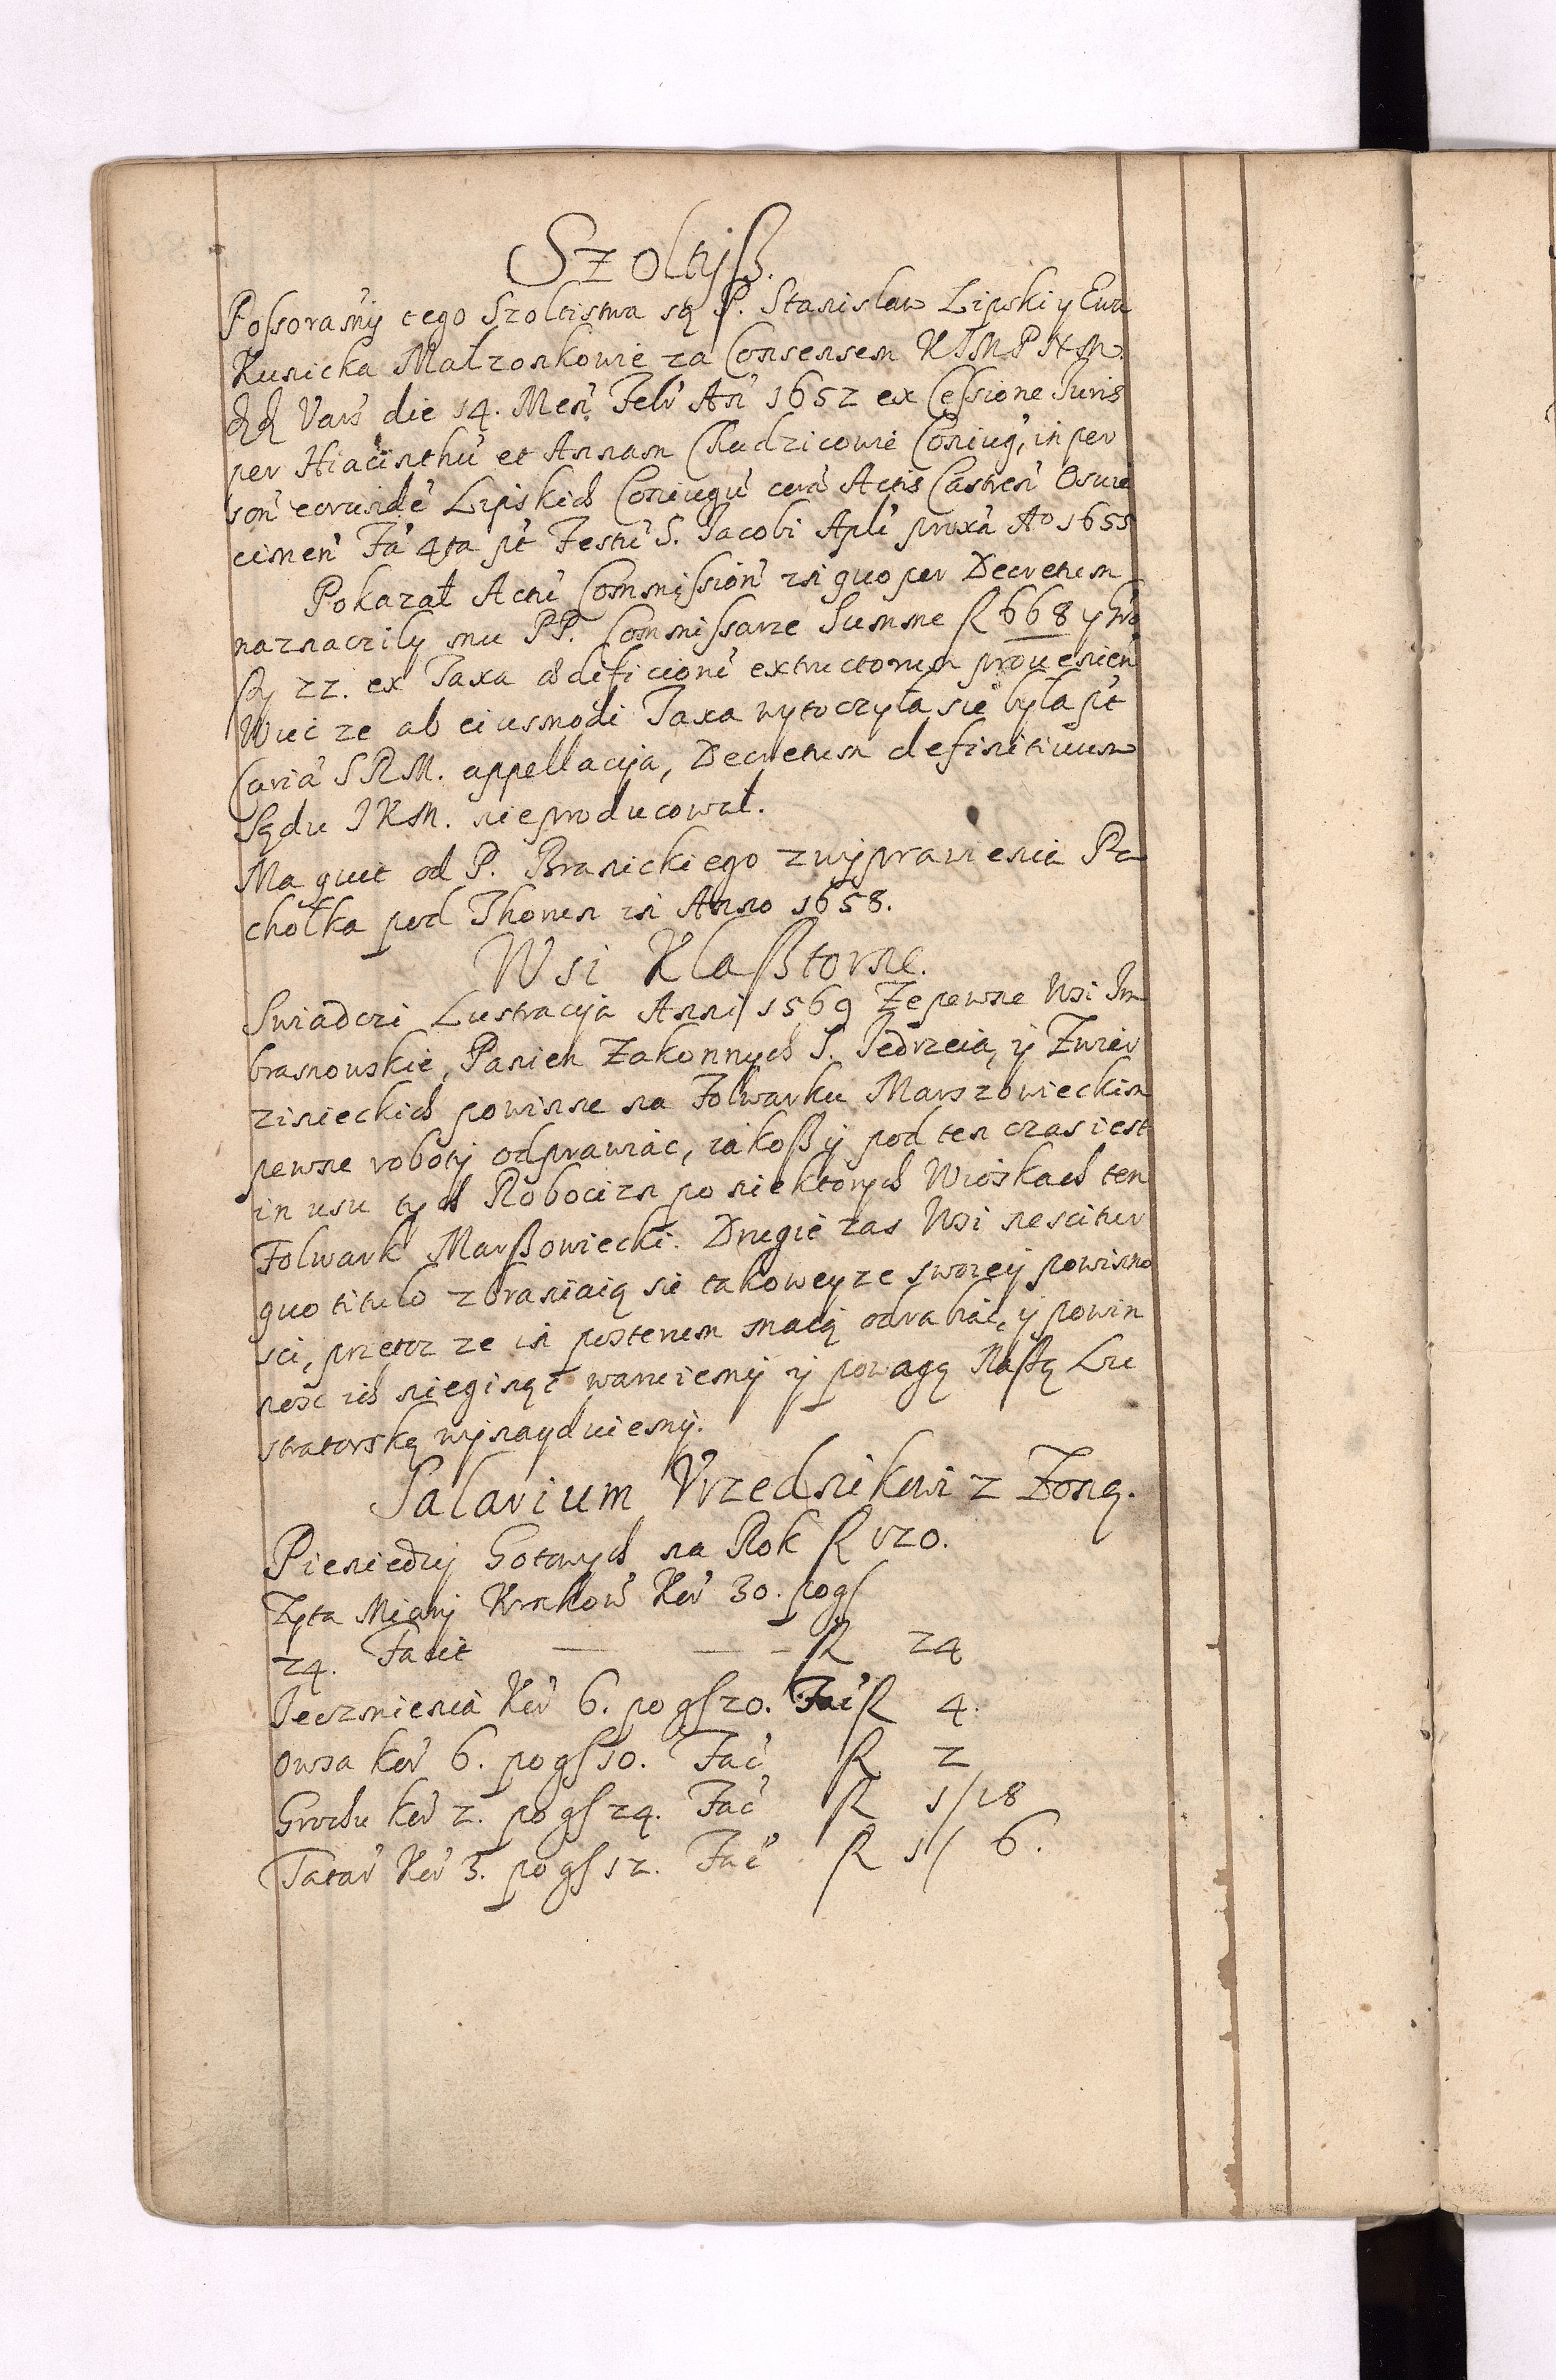 Szoltyß.
Possorami tego Szoltistwa są P. Stanislaw Lipski y Ewa
Kunicka Małzonkowie za Consensem KJMP NM
dd Vars die 14. Men Febr An 1652 ex Cessione Iuris
per Hiacinthu et Annam Chudzicowie Coniug, in per
son eorunde Lipskich Coniugu cora Actis Castren Oswie
cimen Fa 4ta pt Festu S. Jacobi Apli proxa Ao 1655
Pokazał Actu Commission in quo per Decretum
naznaczily mu PP. Commissarze Summe R 668 y
ß 22. ex Taxa ædificioru extructorum prouenien
Wiec ze ab eiusmodi Taxa wytoczyła sie była pt
Curia SRM. appellacija, Decretum definitiuum
Sądu JKM. nieproducował.
Ma quit od P. Branickiego z wyprawienia Pa
chołka pod Thorun in Anno 1658.
Wsi Klaßtorne.
Swiadczi Lustracija Anni 1569 Ze pewne Wsi Im
bramowskie, Panien Zakonnych S. Jedrzeia, y Zwier
zinieckich powinne na Folwarku Marszowieckim
pewne roboty odprawiac, iakoß y pod ten czas iest
in usu tych Robocizn po niektorych Wioskach ten
Folwark Marßowiecki. Drugie zas Wsi nescitur
quo titulo zbraniaią sie takoweyze swoiey powinno
sci, przetoz ze in posterum maią odrabiac, y powin
nosc ich nieginąc waruiemy y powagą Naßą Lu
stratorską wynayduiemy.
Salarium Vrzednikowi z Zoną.
Pieniedzy Gotowych na Rok R 120.
Zyta Miary Krakow Kor 30. po gß
24. Facit — — - R 24
Jeczmienia Kor 6. po gß 20. Fac R 4.
Owsa kor 6. po gß 10. Fac R 2
Grochu kor 2. po gß 24. Fac R 1/18
Tatar Kor 3. po gß 12. Fac R 1/ 6.